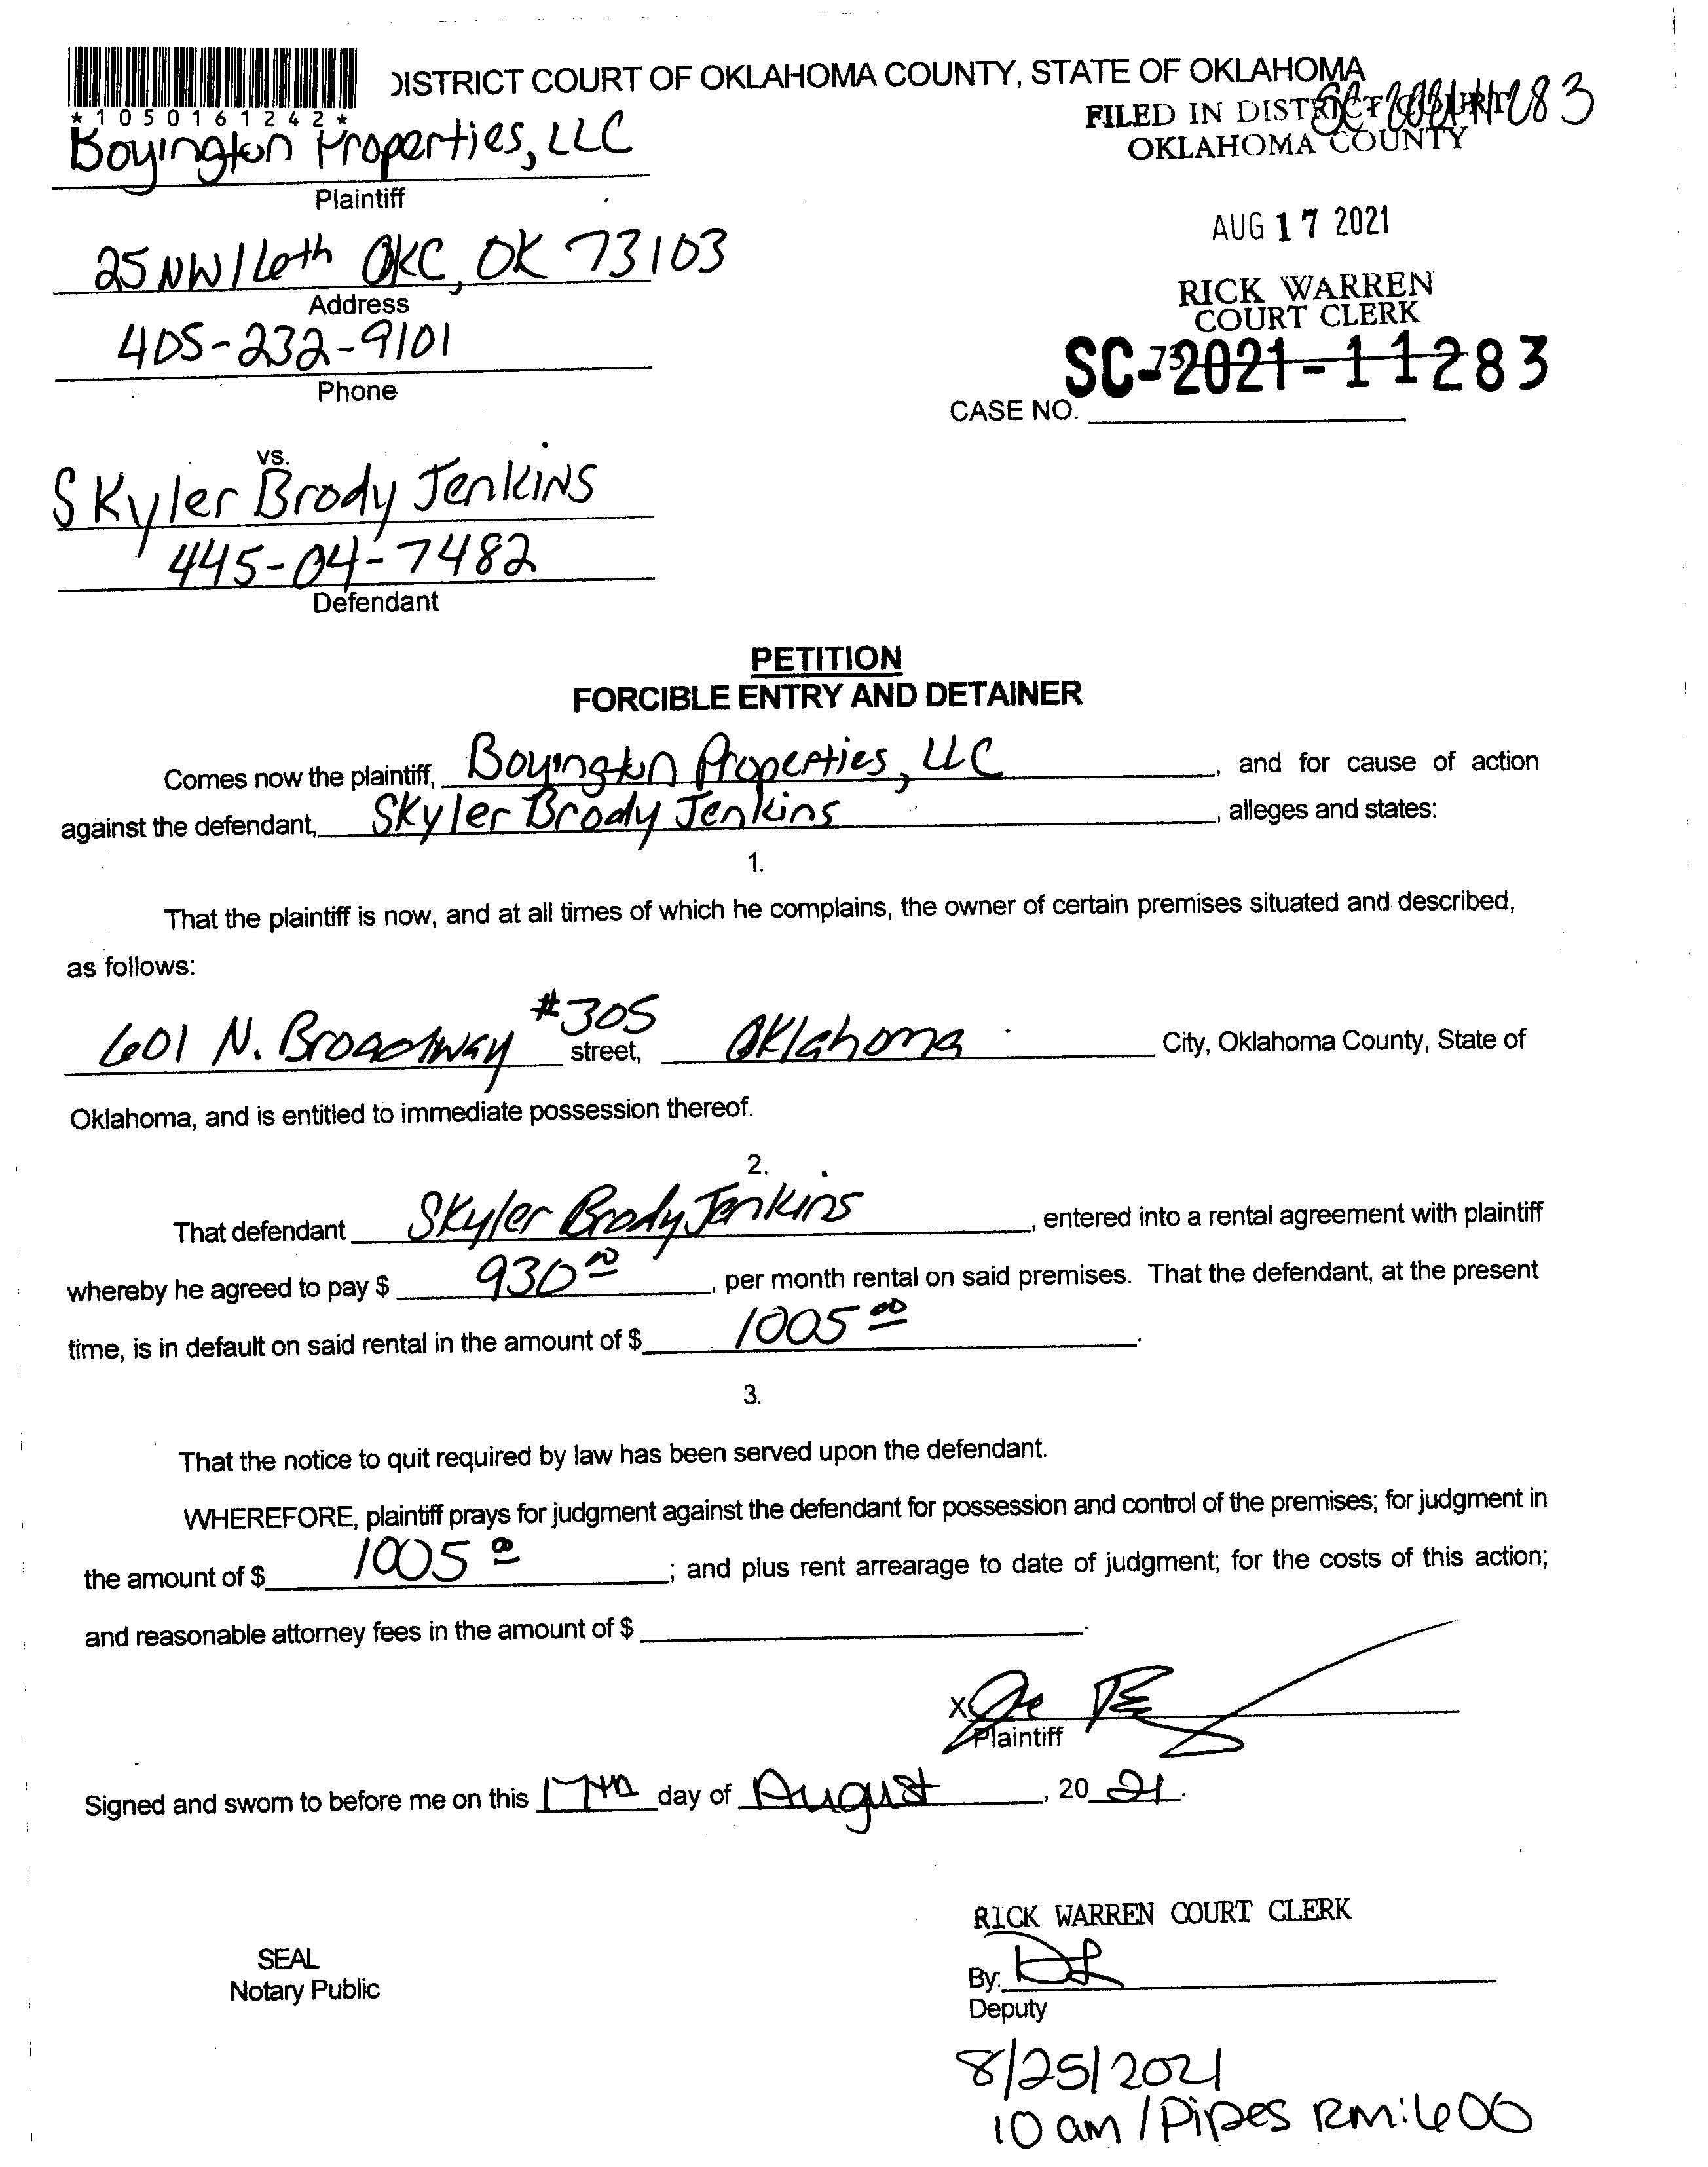 *1050161242*
DISTRICT COURT OF OKLAHOMA COUNTY, STATE OF OKLAHOMA
SC-2021-11283
FILED IN DISTRICT COURT
OKLAHOMA COUNTY
Boyington Properties, LLC
Plaintiff
AUG 17 2021
25 NW 16th OKC, OK 73103
Address
RICK WARREN
COURT CLERK
405-232-9101
Phone
SC-2021-11283
CASE NO.
vs.
Skyler Brody Jenkins
445-04-7482
Defendant
PETITION
FORCIBLE ENTRY AND DETAINER
Comes now the plaintiff, Boyington Properties, LLC, and for cause of action
against the defendant, Skyler Brody Jenkins, alleges and states:
1.
That the plaintiff is now, and at all times of which he complains, the owner of certain premises situated and described,
as follows:
601 N. Broadway #305 street, Oklahoma City, Oklahoma County, State of
Oklahoma, and is entitled to immediate possession thereof.
2.
That defendant Skyler Brody Jenkins, entered into a rental agreement with plaintiff
whereby he agreed to pay $ 930 00, per month rental on said premises. That the defendant, at the present
time, is in default on said rental in the amount of $ 1005 00.
3.
That the notice to quit required by law has been served upon the defendant.
WHEREFORE, plaintiff prays for judgment against the defendant for possession and control of the premises; for judgment in
the amount of $ 1005 00; and plus rent arrearage to date of judgment; for the costs of this action;
and reasonable attorney fees in the amount of $
X
Plaintiff
Signed and sworn to before me on this 17th day of August, 20 21.
RICK WARREN COURT CLERK
SEAL
Notary Public
By:
Deputy
8/25/2021
10 am / Pipes Rm: 600